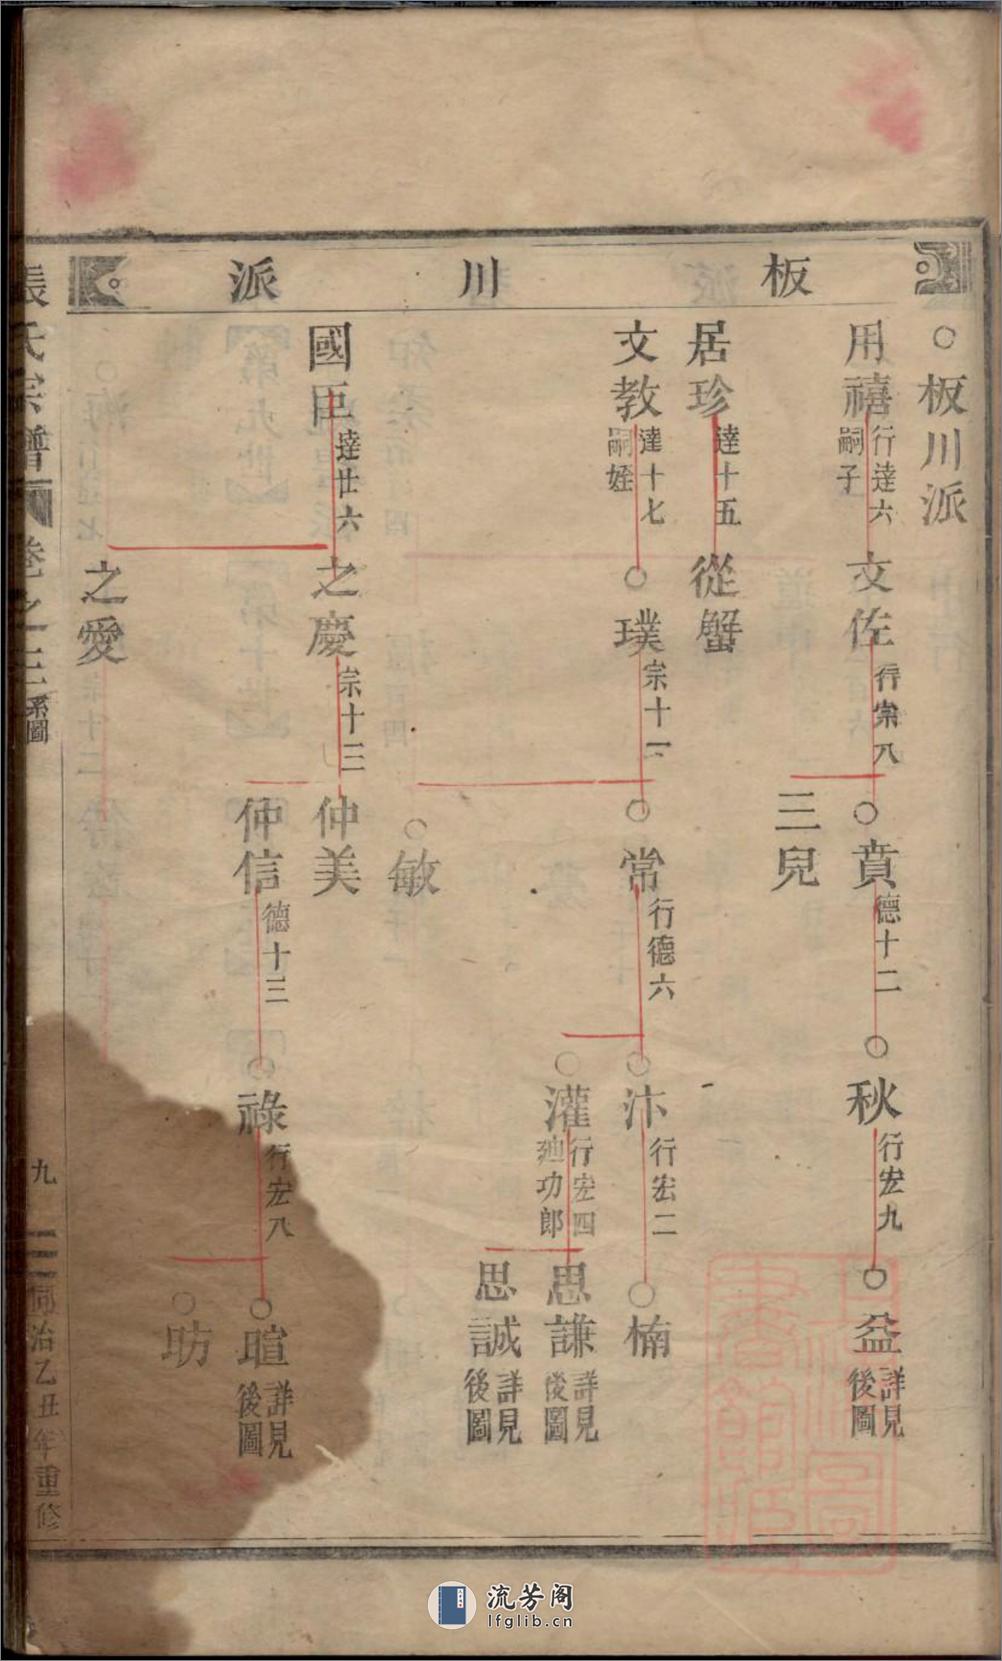 板川派
○板川派
用禧 行達六 嗣子
文佐 行崇八
○賁 德十二
○秋 行宏九
○益 詳見後圖
三兒
居珍 達十五
從蟹
文教 達十七 嗣姪
○璞 宗十一
○常 行德六
○汴 行宏二
○楠
○灌 行宏四 廸功郎
思謙 詳見後圖
思誠 詳見後圖
○敏
國臣 達廿六
之慶 宗十三
仲美
仲信 德十三
○祿 行宏八
○暄 詳見後圖
○昉
之愛
張氏宗譜 卷之三 系圖
九
同治乙丑年重修
流芳阁
lfglib.cn